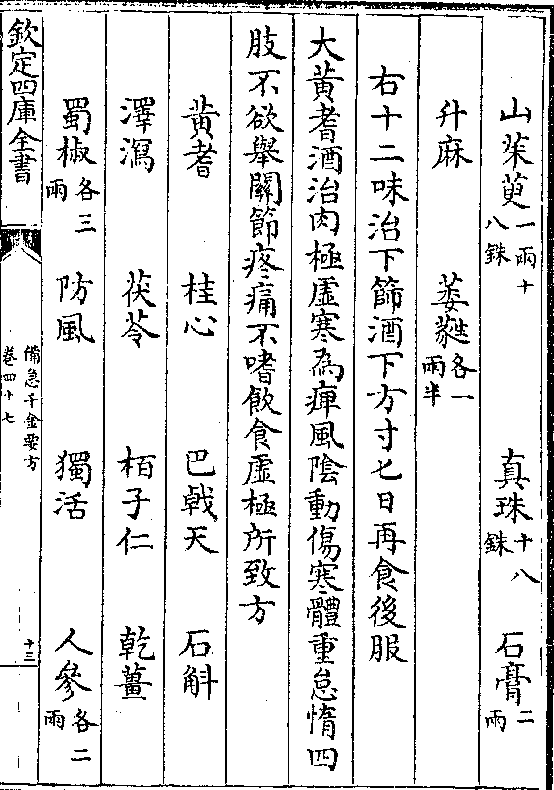 山茱萸一兩十八銖 真珠十八銖 石膏二兩
升麻 萎蕤各一兩半
右十二味治下篩酒下方寸匕日再食後服
大黃耆酒治肉極虛寒為痺風陰動傷寒體重怠惰四
肢不欲舉關節疼痛不嗜飲食虛極所致方
黃耆 桂心 巴戟天 石斛
澤瀉 茯苓 栢子仁 乾薑
蜀椒各三兩 防風 獨活 人參各二兩
欽定四庫全書 備急千金要方 卷四十七 十三